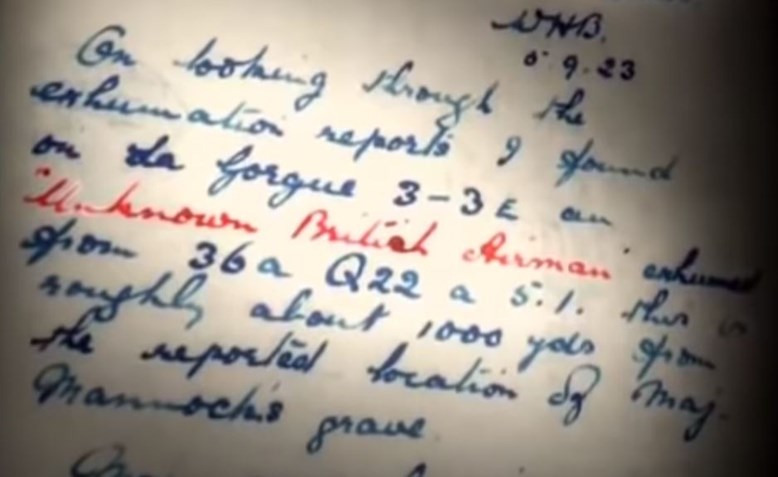 WHB.
5.9.23
On looking through the
exhumation reports I found
on La Gorgue 3-3E an
"Unknown British Airman" exhumed
from 36a Q22 a 5.1. this is
roughly about 1000 yds from
the reported location of Maj.
Mannock's grave.